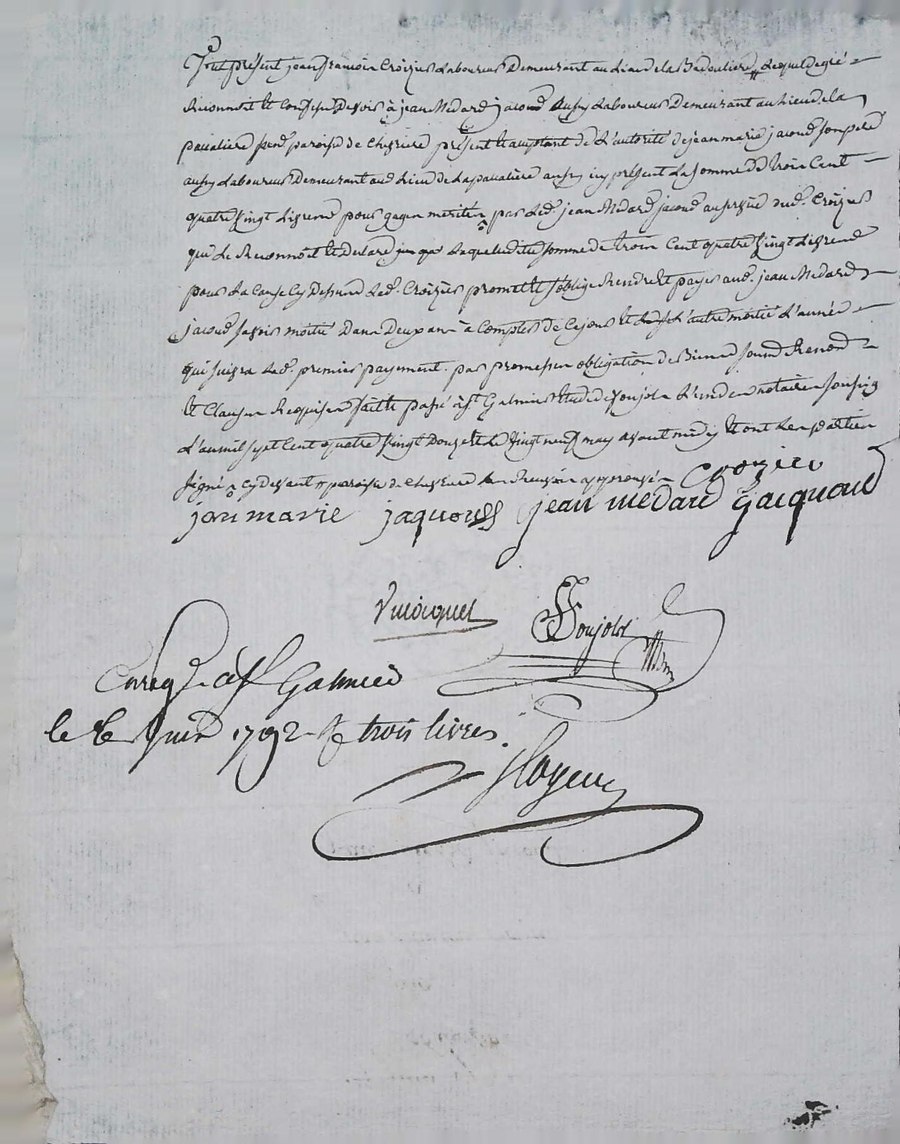 fut présent jean francois Croizier Laboureur Demeurant au Lieu de la Badouliere # Lequel de gré
Reconnoit et Confesse Devoir à jean Medard jacoud aussy Laboureur Demeurant au Lieu de la
pacaliere paroisse de Chevriere présent et acceptant de L'autorité de jean marie jacoud son pere
aussy Laboureur Demeurant aud. Lieu de La pacaliere aussy icy présent La somme de trois Cent
quatre vingt Livres pour gages mérités par led. jean Medard jacoud au service dud. Croizier
qui Le Reconnoit et declare jcy Laquelle ditte somme de trois Cent quatre vingt Livres
pour La Cause Cy Dessus led. Croizier promet et s'oblige Rendre et payer aud. jean Medard
jacoud savoir moitié Dans Deux ans à Compter de Ce jour et L'autre moitié L'année
qui suivra Led. premier payement. par promesse obligation de Biens soum. Renon.
et Clauses Requises faitte passé à St. Galmier Etude de Soujolot L'un des notaires soussig.
L'an mil sept Cent quatre vingt Douze et Le vingt neuf may avant midy Et ont Les parties
signé Cy dessus # paroisse de Chevriere approuvé Crozier
jan marie jaquoud jean medard Jacquoud
Soujolot
Enreg. à St Galmier
le Juin 1792 R trois livres.